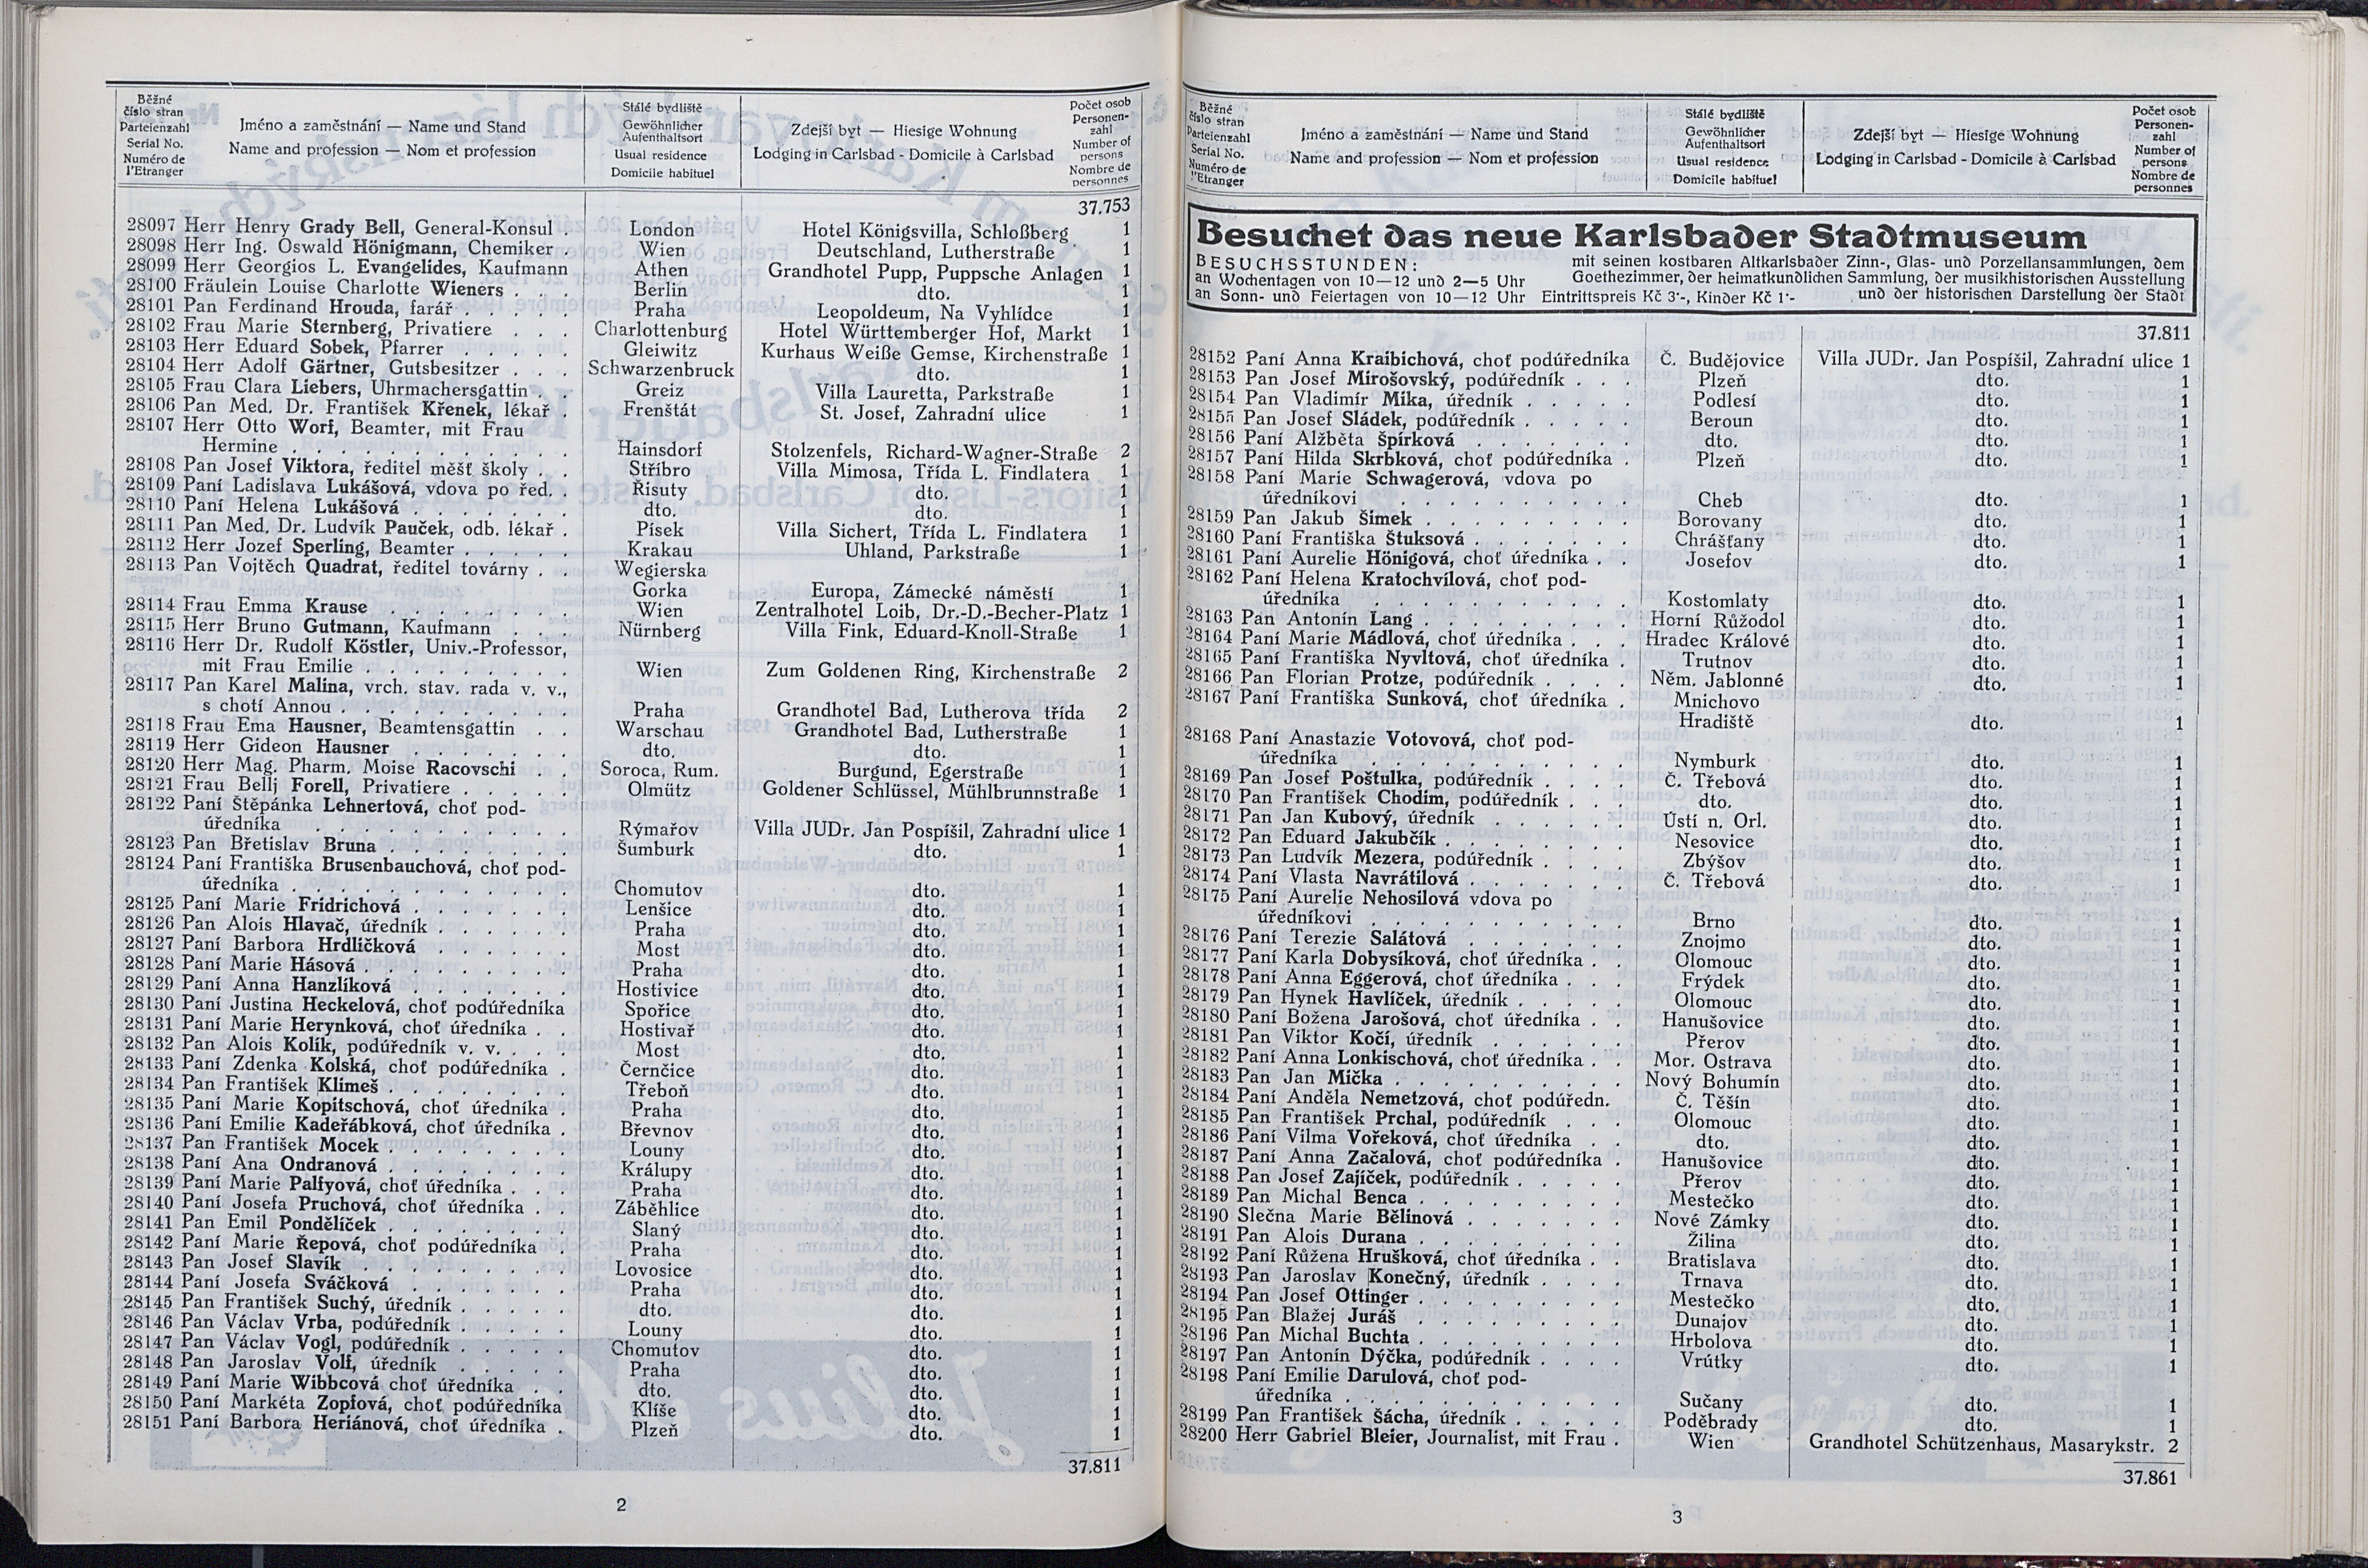 Běžné číslo stran
Parteienzahl
Serial No.
Numéro de l'Etranger
Jméno a zaměstnání — Name und Stand
Name and profession — Nom et profession
Stálé bydliště
Gewöhnlicher Aufenthaltsort
Usual residence
Domicile habituel
Zdejší byt — Hiesige Wohnung
Lodging in Carlsbad - Domicile à Carlsbad
Počet osob
Personen-
zahl
Number of persons
Nombre de personnes
37.753
28097 Herr Henry Grady Bell, General-Konsul . London Hotel Königsvilla, Schloßberg 1
28098 Herr Ing. Oswald Hönigmann, Chemiker . Wien Deutschland, Lutherstraße 1
28099 Herr Georgios L. Evangelides, Kaufmann Athen Grandhotel Pupp, Puppsche Anlagen 1
28100 Fräulein Louise Charlotte Wieners . . . Berlin dto. 1
28101 Pan Ferdinand Hrouda, farář . . . . . Praha Leopoldeum, Na Vyhlídce 1
28102 Frau Marie Sternberg, Privatiere . . . Charlottenburg Hotel Württemberger Hof, Markt 1
28103 Herr Eduard Sobek, Pfarrer . . . . . Gleiwitz Kurhaus Weiße Gemse, Kirchenstraße 1
28104 Herr Adolf Gärtner, Gutsbesitzer . . . Schwarzenbruck dto. 1
28105 Frau Clara Liebers, Uhrmachersgattin . . Greiz Villa Lauretta, Parkstraße 1
28106 Pan Med. Dr. František Křenek, lékař . Frenštát St. Josef, Zahradní ulice 1
28107 Herr Otto Worf, Beamter, mit Frau
Hermine . . . . . . . . . . . . Hainsdorf Stolzenfels, Richard-Wagner-Straße 2
28108 Pan Josef Viktora, ředitel měšť školy . . Stříbro Villa Mimosa, Třída L. Findlatera 1
28109 Paní Ladislava Lukášová, vdova po řed. . Řisuty dto. 1
28110 Paní Helena Lukášová . . . . . . . dto. dto. 1
28111 Pan Med. Dr. Ludvík Pauček, odb. lékař . Písek Villa Sichert, Třída L. Findlatera 1
28112 Herr Jozef Sperling, Beamter . . . . . Krakau Uhland, Parkstraße 1
28113 Pan Vojtěch Quadrat, ředitel továrny . . Wegierska
Gorka Europa, Zámecké náměstí 1
28114 Frau Emma Krause . . . . . . . . Wien Zentralhotel Loib, Dr.-D.-Becher-Platz 1
28115 Herr Bruno Gutmann, Kaufmann . . . Nürnberg Villa Fink, Eduard-Knoll-Straße 1
28116 Herr Dr. Rudolf Köstler, Univ.-Professor,
mit Frau Emilie . . . . . . . . . Wien Zum Goldenen Ring, Kirchenstraße 2
28117 Pan Karel Malina, vrch. stav. rada v. v.,
s chotí Annou . . . . . . . . . . Praha Grandhotel Bad, Lutherova třída 2
28118 Frau Ema Hausner, Beamtensgattin . . Warschau Grandhotel Bad, Lutherstraße 1
28119 Herr Gideon Hausner . . . . . . . dto. dto. 1
28120 Herr Mag. Pharm. Moise Racovschi . . Soroca, Rum. Burgund, Egerstraße 1
28121 Frau Bellj Forell, Privatiere . . . . . Olmütz Goldener Schlüssel, Mühlbrunnstraße 1
28122 Paní Štěpánka Lehnertová, choť pod-
úředníka . . . . . . . . . . . Rýmařov Villa JUDr. Jan Pospíšil, Zahradní ulice 1
28123 Pan Břetislav Bruna . . . . . . . . Šumburk dto. 1
28124 Paní Františka Brusenbauchová, choť pod-
úředníka . . . . . . . . . . . . Chomutov dto. 1
28125 Paní Marie Fridrichová . . . . . . . Lenšice dto. 1
28126 Pan Alois Hlavač, úředník . . . . . . Praha dto. 1
28127 Paní Barbora Hrdličková . . . . . . Most dto. 1
28128 Paní Marie Hásová . . . . . . . . . Praha dto. 1
28129 Paní Anna Hanzlíková . . . . . . . Hostivice dto. 1
28130 Paní Justina Heckelová, choť podúředníka Spořice dto. 1
28131 Paní Marie Herynková, choť úředníka . . Hostivař dto. 1
28132 Pan Alois Kolík, podúředník v. v. . . . Most dto. 1
28133 Paní Zdenka Kolská, choť podúředníka . Černčice dto. 1
28134 Pan František Klimeš . . . . . . . . Třeboň dto. 1
28135 Paní Marie Kopitschová, choť úředníka Praha dto. 1
28136 Paní Emilie Kadeřábková, choť úředníka . Břevnov dto. 1
28137 Pan František Mocek . . . . . . . . Louny dto. 1
28138 Paní Ana Ondranová . . . . . . . . Králupy dto. 1
28139 Paní Marie Palfyová, choť úředníka . . . Praha dto. 1
28140 Paní Josefa Pruchová, choť úředníka . . Záběhlice dto. 1
28141 Pan Emil Pondělíček . . . . . . . . Slaný dto. 1
28142 Paní Marie Řepová, choť podúředníka . Praha dto. 1
28143 Pan Josef Slavík . . . . . . . . . Lovosice dto. 1
28144 Paní Josefa Sváčková . . . . . . . Praha dto. 1
28145 Pan František Suchý, úředník . . . . . dto. dto. 1
28146 Pan Václav Vrba, podúředník . . . . . Louny dto. 1
28147 Pan Václav Vogl, podúředník . . . . . Chomutov dto. 1
28148 Pan Jaroslav Volf, úředník . . . . . Praha dto. 1
28149 Paní Marie Wibbcová choť úředníka . . dto. dto. 1
28150 Paní Markéta Zopfová, choť podúředníka Klíše dto. 1
28151 Paní Barbora Heriánová, choť úředníka . Plzeň dto. 1
37.811
2
Běžné číslo stran
Parteienzahl
Serial No.
Numéro de l'Etranger
Jméno a zaměstnání — Name und Stand
Name and profession — Nom et profession
Stálé bydliště
Gewöhnlicher Aufenthaltsort
Usual residence
Domicile habituel
Zdejší byt — Hiesige Wohnung
Lodging in Carlsbad - Domicile à Carlsbad
Počet osob
Personen-
zahl
Number of persons
Nombre de personnes
Besuchet das neue Karlsbader Stadtmuseum
BESUCHSSTUNDEN:
an Wochentagen von 10—12 und 2—5 Uhr
an Sonn- und Feiertagen von 10—12 Uhr Eintrittspreis Kč 3·-, Kinder Kč 1·-
mit seinen kostbaren Altkarlsbader Zinn-, Glas- und Porzellansammlungen, dem
Goethezimmer, der heimatkundlichen Sammlung, der musikhistorischen Ausstellung
und der historischen Darstellung der Stadt
37.811
28152 Paní Anna Kraibichová, choť podúředníka Č. Budějovice Villa JUDr. Jan Pospíšil, Zahradní ulice 1
28153 Pan Josef Mirošovský, podúředník . . . Plzeň dto. 1
28154 Pan Vladimír Mika, úředník . . . . . Podlesí dto. 1
28155 Pan Josef Sládek, podúředník . . . . . Beroun dto. 1
28156 Paní Alžběta Špírková . . . . . . . dto. dto. 1
28157 Paní Hilda Skrbková, choť podúředníka . Plzeň dto. 1
28158 Paní Marie Schwagerová, vdova po
úředníkovi . . . . . . . . . . . Cheb dto. 1
28159 Pan Jakub Šimek . . . . . . . . . Borovany dto. 1
28160 Paní Františka Štuksová . . . . . . . Chrášťany dto. 1
28161 Paní Aurelie Hönigová, choť úředníka . . Josefov dto. 1
28162 Paní Helena Kratochvílová, choť pod-
úředníka . . . . . . . . . . . Kostomlaty dto. 1
28163 Pan Antonín Lang . . . . . . . . . Horní Růžodol dto. 1
28164 Paní Marie Mádlová, choť úředníka . . . Hradec Králové dto. 1
28165 Paní Františka Nyvltová, choť úředníka . Trutnov dto. 1
28166 Pan Florian Protze, podúředník . . . . Něm. Jablonné dto. 1
28167 Paní Františka Sunková, choť úředníka . Mnichovo
Hradiště dto. 1
28168 Paní Anastazie Votovová, choť pod-
úředníka . . . . . . . . . . . Nymburk dto. 1
28169 Pan Josef Poštulka, podúředník . . . . Č. Třebová dto. 1
28170 Pan František Chodim, podúředník . . . dto. dto. 1
28171 Pan Jan Kubový, úředník . . . . . . Ústí n. Orl. dto. 1
28172 Pan Eduard Jakubčík . . . . . . . . Nesovice dto. 1
28173 Pan Ludvík Mezera, podúředník . . . . Zbýšov dto. 1
28174 Paní Vlasta Navrátilová . . . . . . Č. Třebová dto. 1
28175 Paní Aurelie Nehosilová vdova po
úředníkovi . . . . . . . . . . . Brno dto. 1
28176 Paní Terezie Salátová . . . . . . . Znojmo dto. 1
28177 Paní Karla Dobysíková, choť úředníka . . Olomouc dto. 1
28178 Paní Anna Eggerová, choť úředníka . . . Frýdek dto. 1
28179 Pan Hynek Havlíček, úředník . . . . . Olomouc dto. 1
28180 Paní Božena Jarošová, choť úředníka . . Hanušovice dto. 1
28181 Pan Viktor Kočí, úředník . . . . . . Přerov dto. 1
28182 Paní Anna Lonkischová, choť úředníka . . Mor. Ostrava dto. 1
28183 Pan Jan Mička . . . . . . . . . . Nový Bohumín dto. 1
28184 Paní Anděla Nemetzová, choť podúředn. Č. Těšín dto. 1
28185 Pan František Prchal, podúředník . . . Olomouc dto. 1
28186 Paní Vilma Vořeková, choť úředníka . . dto. dto. 1
28187 Paní Anna Začalová, choť podúředníka . Hanušovice dto. 1
28188 Pan Josef Zajíček, podúředník . . . . . Přerov dto. 1
28189 Pan Michal Benca . . . . . . . . . Mestečko dto. 1
28190 Slečna Marie Bělinová . . . . . . . Nové Zámky dto. 1
28191 Pan Alois Durana . . . . . . . . . Žilina dto. 1
28192 Paní Růžena Hrušková, choť úředníka . . Bratislava dto. 1
28193 Pan Jaroslav Konečný, úředník . . . . Trnava dto. 1
28194 Pan Josef Ottinger . . . . . . . . . Mestečko dto. 1
28195 Pan Blažej Juráš . . . . . . . . . Dunajov dto. 1
28196 Pan Michal Buchta . . . . . . . . . Hrbolova dto. 1
28197 Pan Antonín Dýčka, podúředník . . . . Vrútky dto. 1
28198 Paní Emilie Darulová, choť pod-
úředníka . . . . . . . . . . . . Sučany dto. 1
28199 Pan František Šácha, úředník . . . . . Poděbrady dto. 1
28200 Herr Gabriel Bleier, Journalist, mit Frau . Wien Grandhotel Schützenhaus, Masarykstr. 2
37.861
3